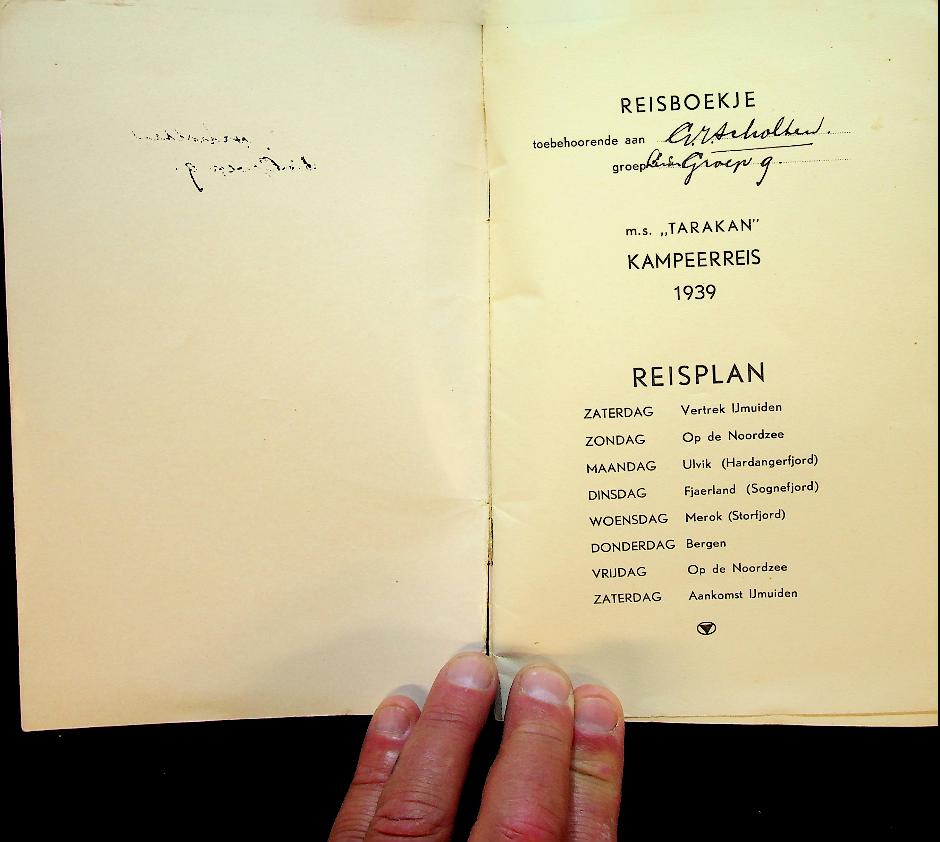 REISBOEKJE
toebehoorende aan Scholten.
groep Groep 9.
m.s. „TARAKAN”
KAMPEERREIS
1939
REISPLAN
ZATERDAG Vertrek IJmuiden
ZONDAG Op de Noordzee
MAANDAG Ulvik (Hardangerfjord)
DINSDAG Fjaerland (Sognefjord)
WOENSDAG Merok (Storfjord)
DONDERDAG Bergen
VRIJDAG Op de Noordzee
ZATERDAG Aankomst IJmuiden